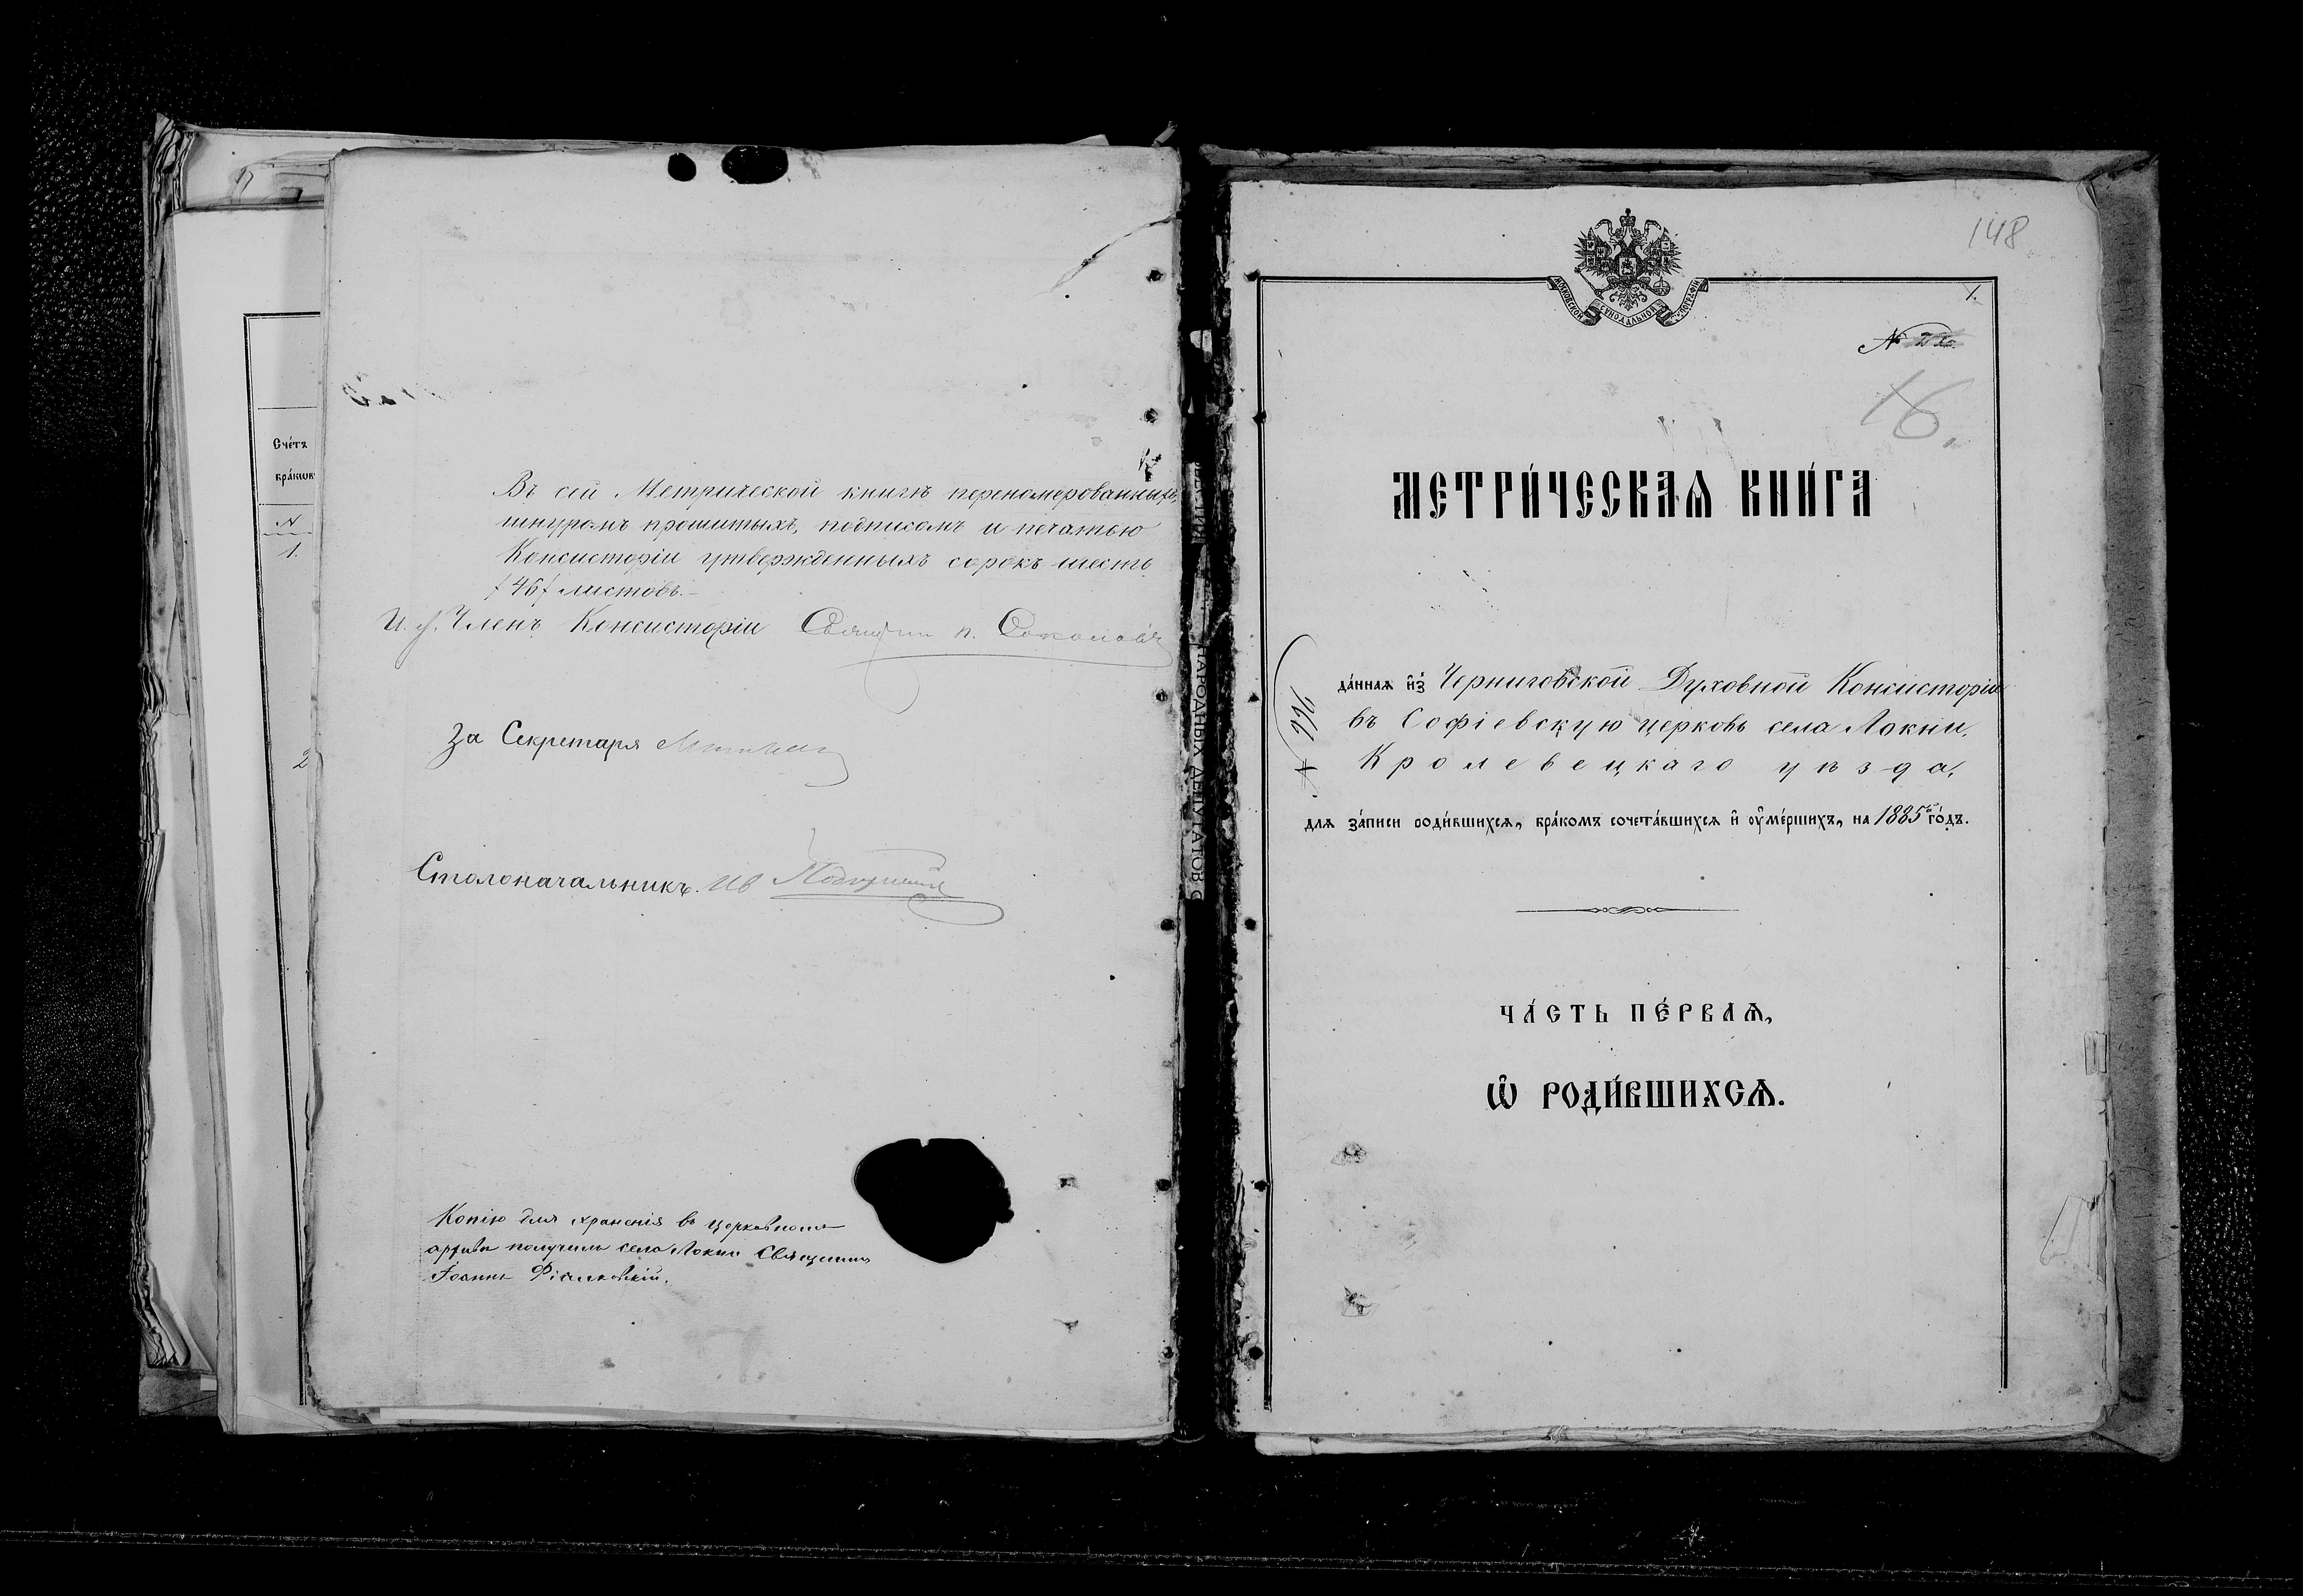 Счéтъ
брáковъ
№
1.
2
Въ сей Метрической книгѣ перенумерованныхъ,
шнуромъ прошитыхъ, подписомъ и печатью
Консисторіи утвержденныхъ сорокъ шесть
/46/ листовъ.
И. д. Членъ Консисторіи Священ. п. Соколовъ
За Секретаря
Столоначальникъ. Ив
Копію для храненія въ церковномъ
архивѣ получилъ села Локни Священникъ
Іоаннъ
НАРОДНЫХ ДЕПУТАТОВ С
148
МОСКОВСКОЙ СѴНОДАЛЬНОЙ ТѴПОГРАФІИ
1.
№
16.
МЕТРИ́ЧЕСКАѦ КНИ́ГА
№ 996
дáннаѧ и҆з̾ Черниговской Духовной Консисторіи
въ Софіевскую церковь села Локни,
Кролевецкаго уѣзда,
длѧ зáписи роди́вшихсѧ, брáкомъ сочетáвшихсѧ и҆ ᲂу҆мéршихъ, на 1885й гóдъ.
ЧА́СТЬ ПЕ́РВАѦ,
Ѽ РОДИ́ВШИХСѦ.